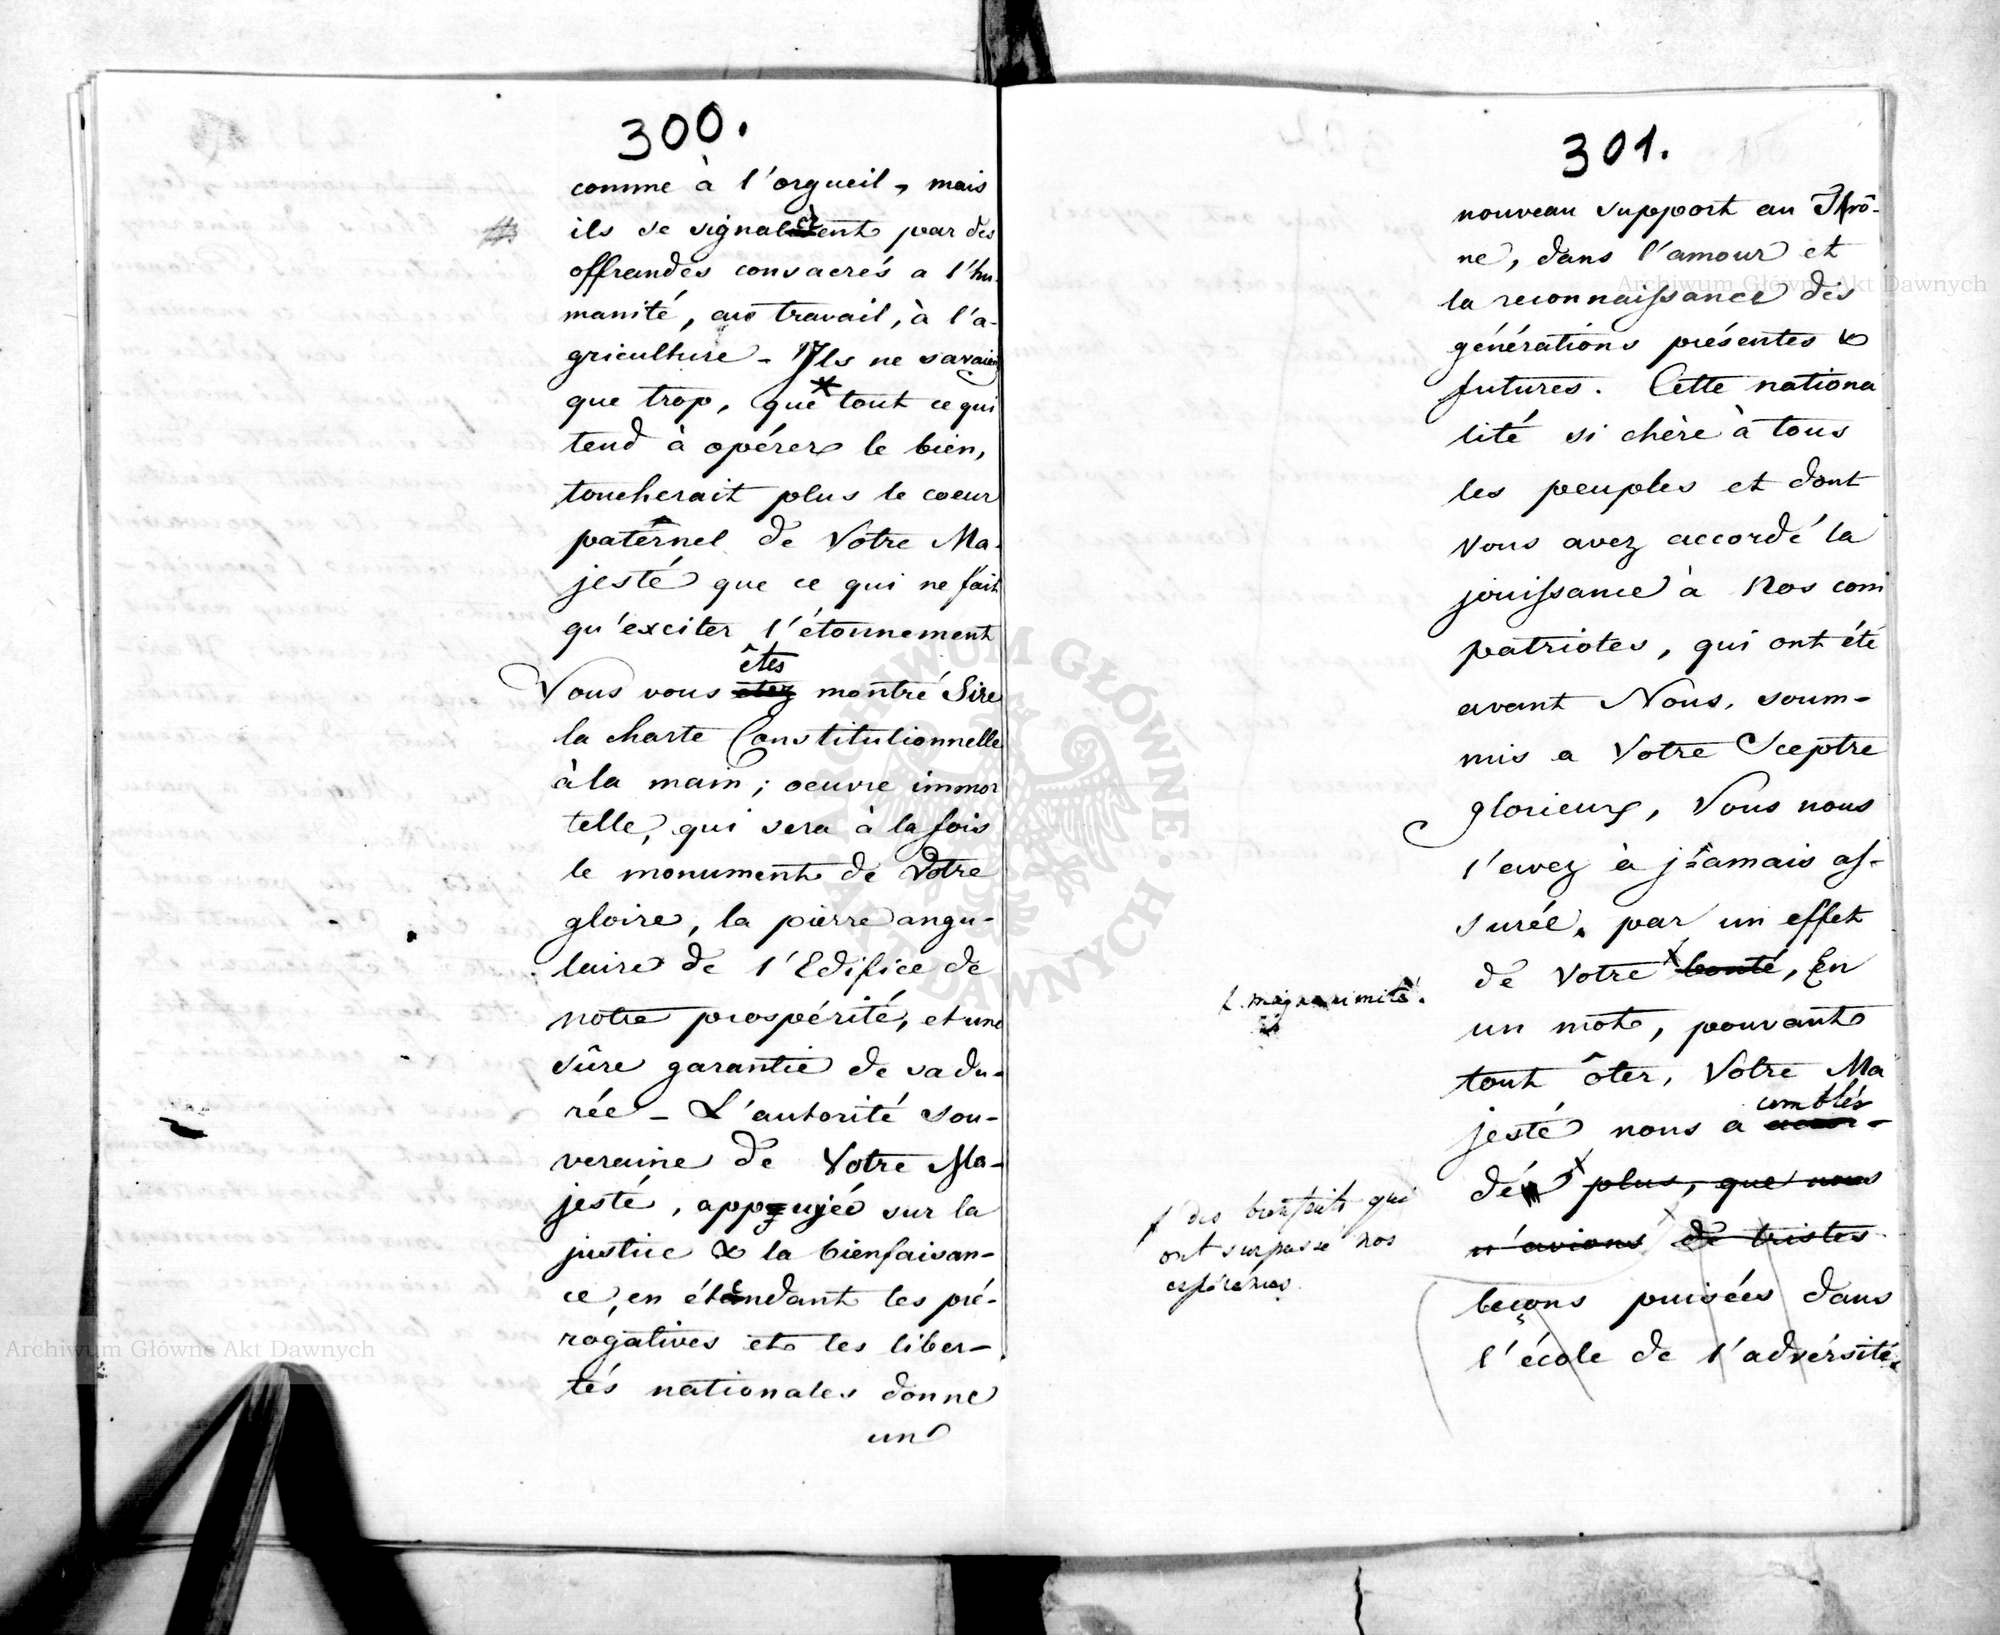 300.
comme à l'orgueil, mais
ils se signalèrent par des
offrandes consacrés a l'hu-
manité, au travail, à l'a-
griculture - Ils ne savaient
que trop, que tout ce qui
tend à opérer le bien,
toucherait plus le coeur
paternel de Votre Ma-
jesté que ce qui ne fait
qu'exciter l'étonnement
êtes
Vous vous montré Sire
la charte Constitutionnelle
à la main; oeuvre immor
telle, qui sera à la fois
le monument de Votre
gloire, la pierre angu-
laire de l'Edifice de
notre prospérité, et une
sûre garantie de sa du-
rée - L'autorité sou-
veraine de Votre Ma-
jesté, appuyée sur la
justice & la bienfaisan-
ce, en étendant les pré-
rogatives et les liber-
tés nationales donne
un
301.
nouveau support au Thrô-
ne, dans l'amour et
la reconnaissance des
générations présentes &
futures. Cette nationa
lité si chère à tous
les peuples et dont
Vous avez accordé la
jouissance à Nos com
patriotes, qui ont été
avant Nous, soum-
mis a Votre Sceptre
glorieux, Vous nous
l'avez à jamais as-
surée, par un effet
de Votre bonté, En
magnanimité.
un mot, pouvant
tout ôter, Votre Ma
comblés
jesté nous a accor-
dé plus, que nous
n'avions de tristes
des bienfaits qui
ont surpassé nos
espérances.
leçons puisées dans
l'école de l'adversité.
Archiwum Główne Akt Dawnych
Archiwum Główne Akt Dawnych
ARCHIWUM GŁÓWNE AKT DAWNYCH